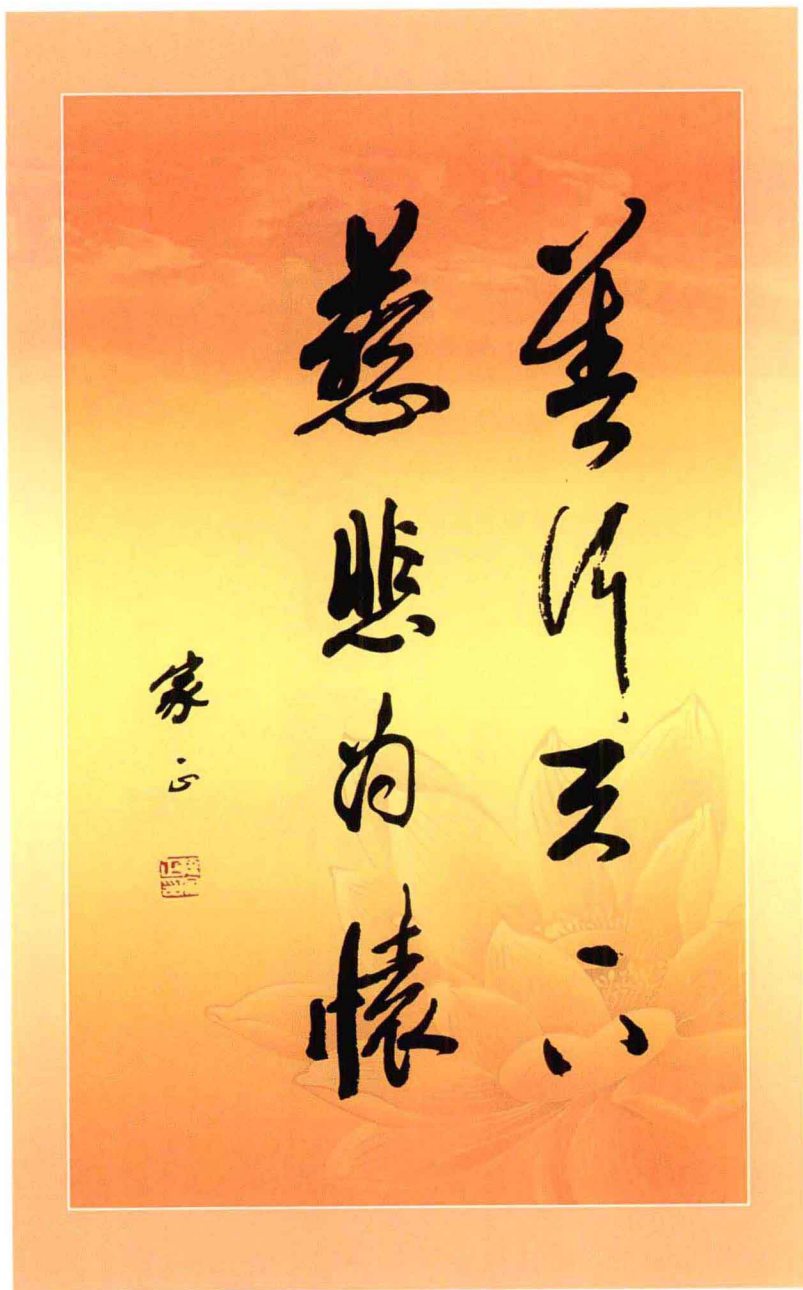 善行天下
慈悲为怀
家正